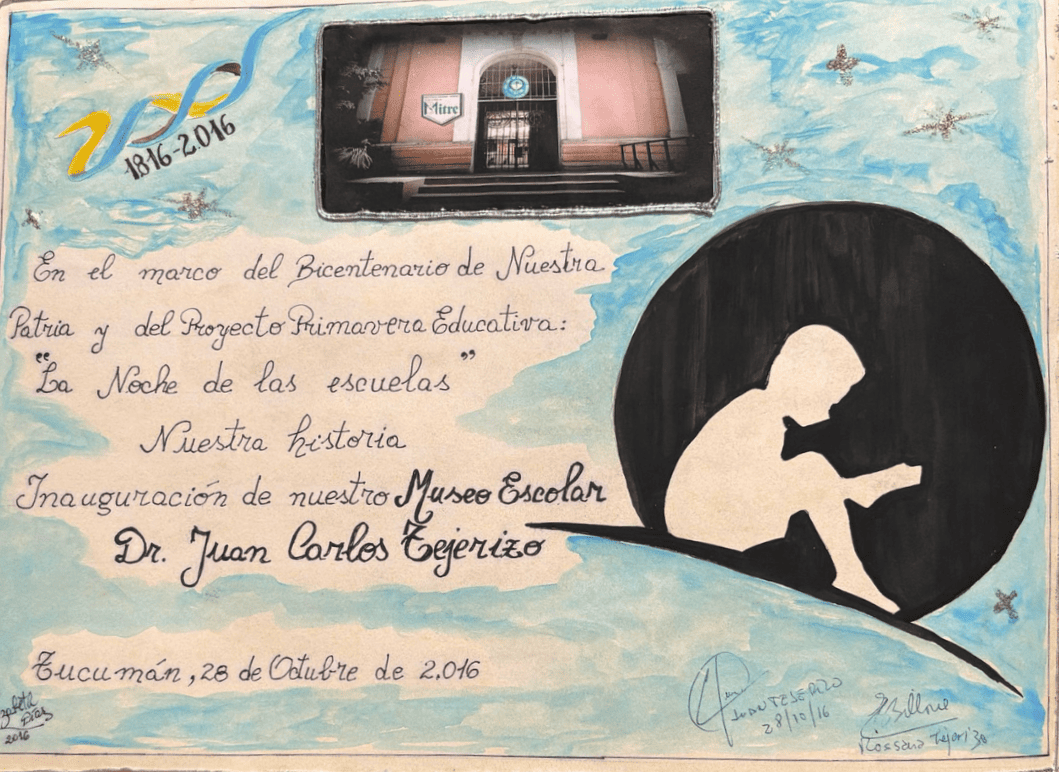 1816-2.016
Mitre
En el marco del Bicentenario de Nuestra
Patria y del Proyecto Primavera Educativa:
"La Noche de las escuelas"
Nuestra historia
Inauguración de nuestro Museo Escolar
Dr. Juan Carlos Tejerizo
Tucumán, 28 de Octubre de 2.016
Díaz
2016
JUAN TEJERIZO
28/10/16
Rossana Tejerizo